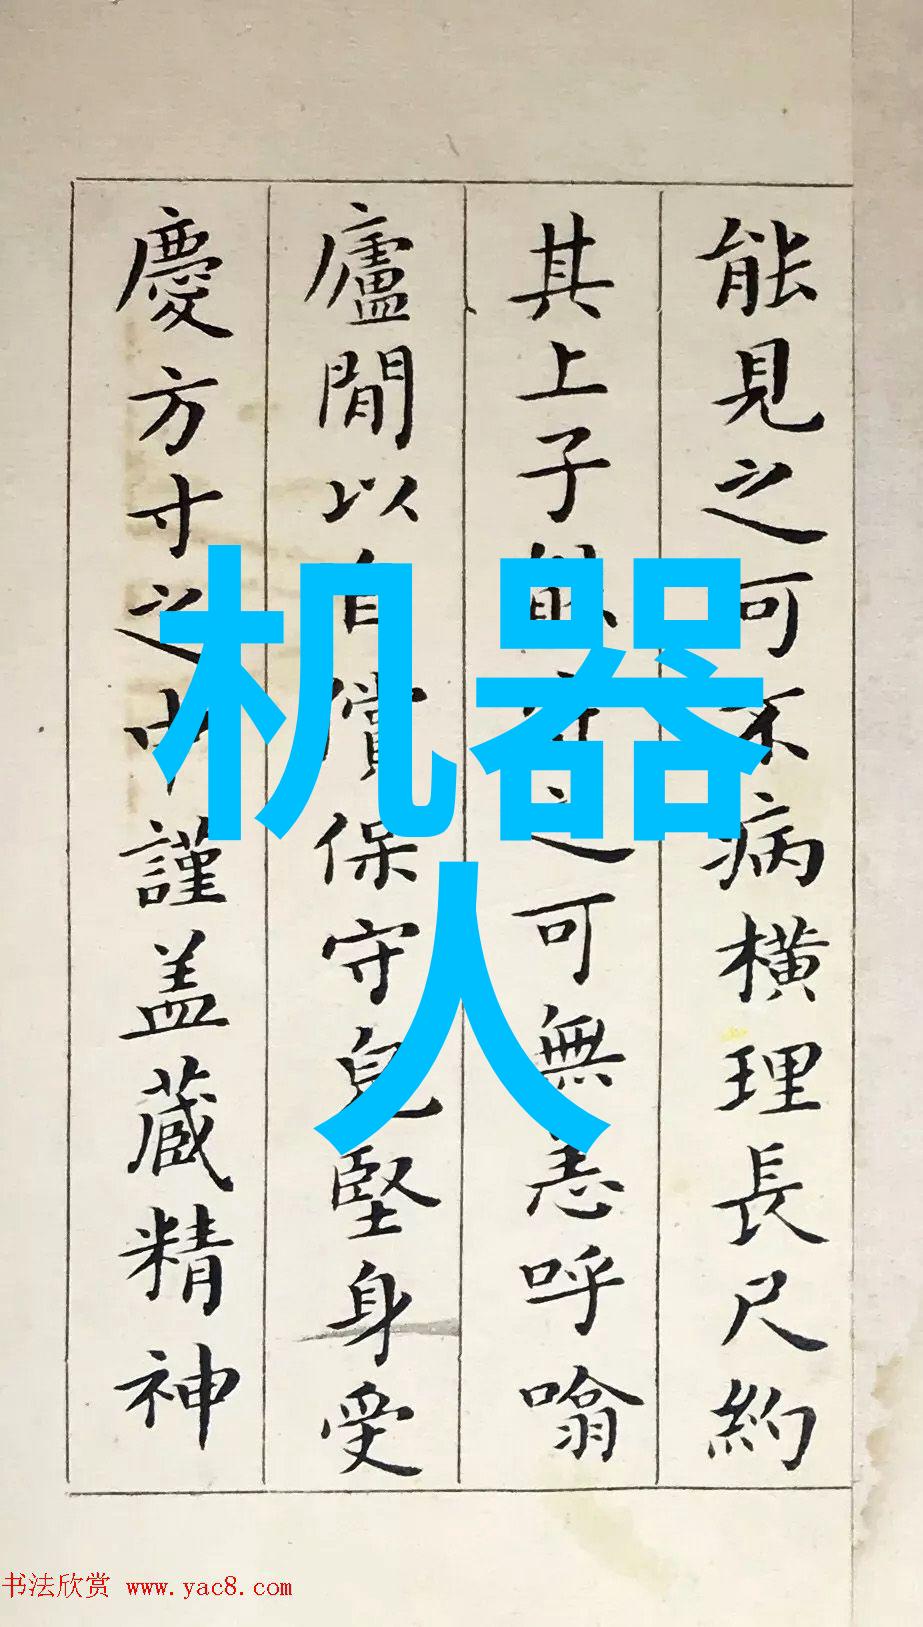 能見之可不病橫理長尺約
其上子能之可無恙呼噏
廬閒以自償保守堅身受
慶方寸之中謹盖蔵精神
机器
人
书法欣赏 www.yac8.com